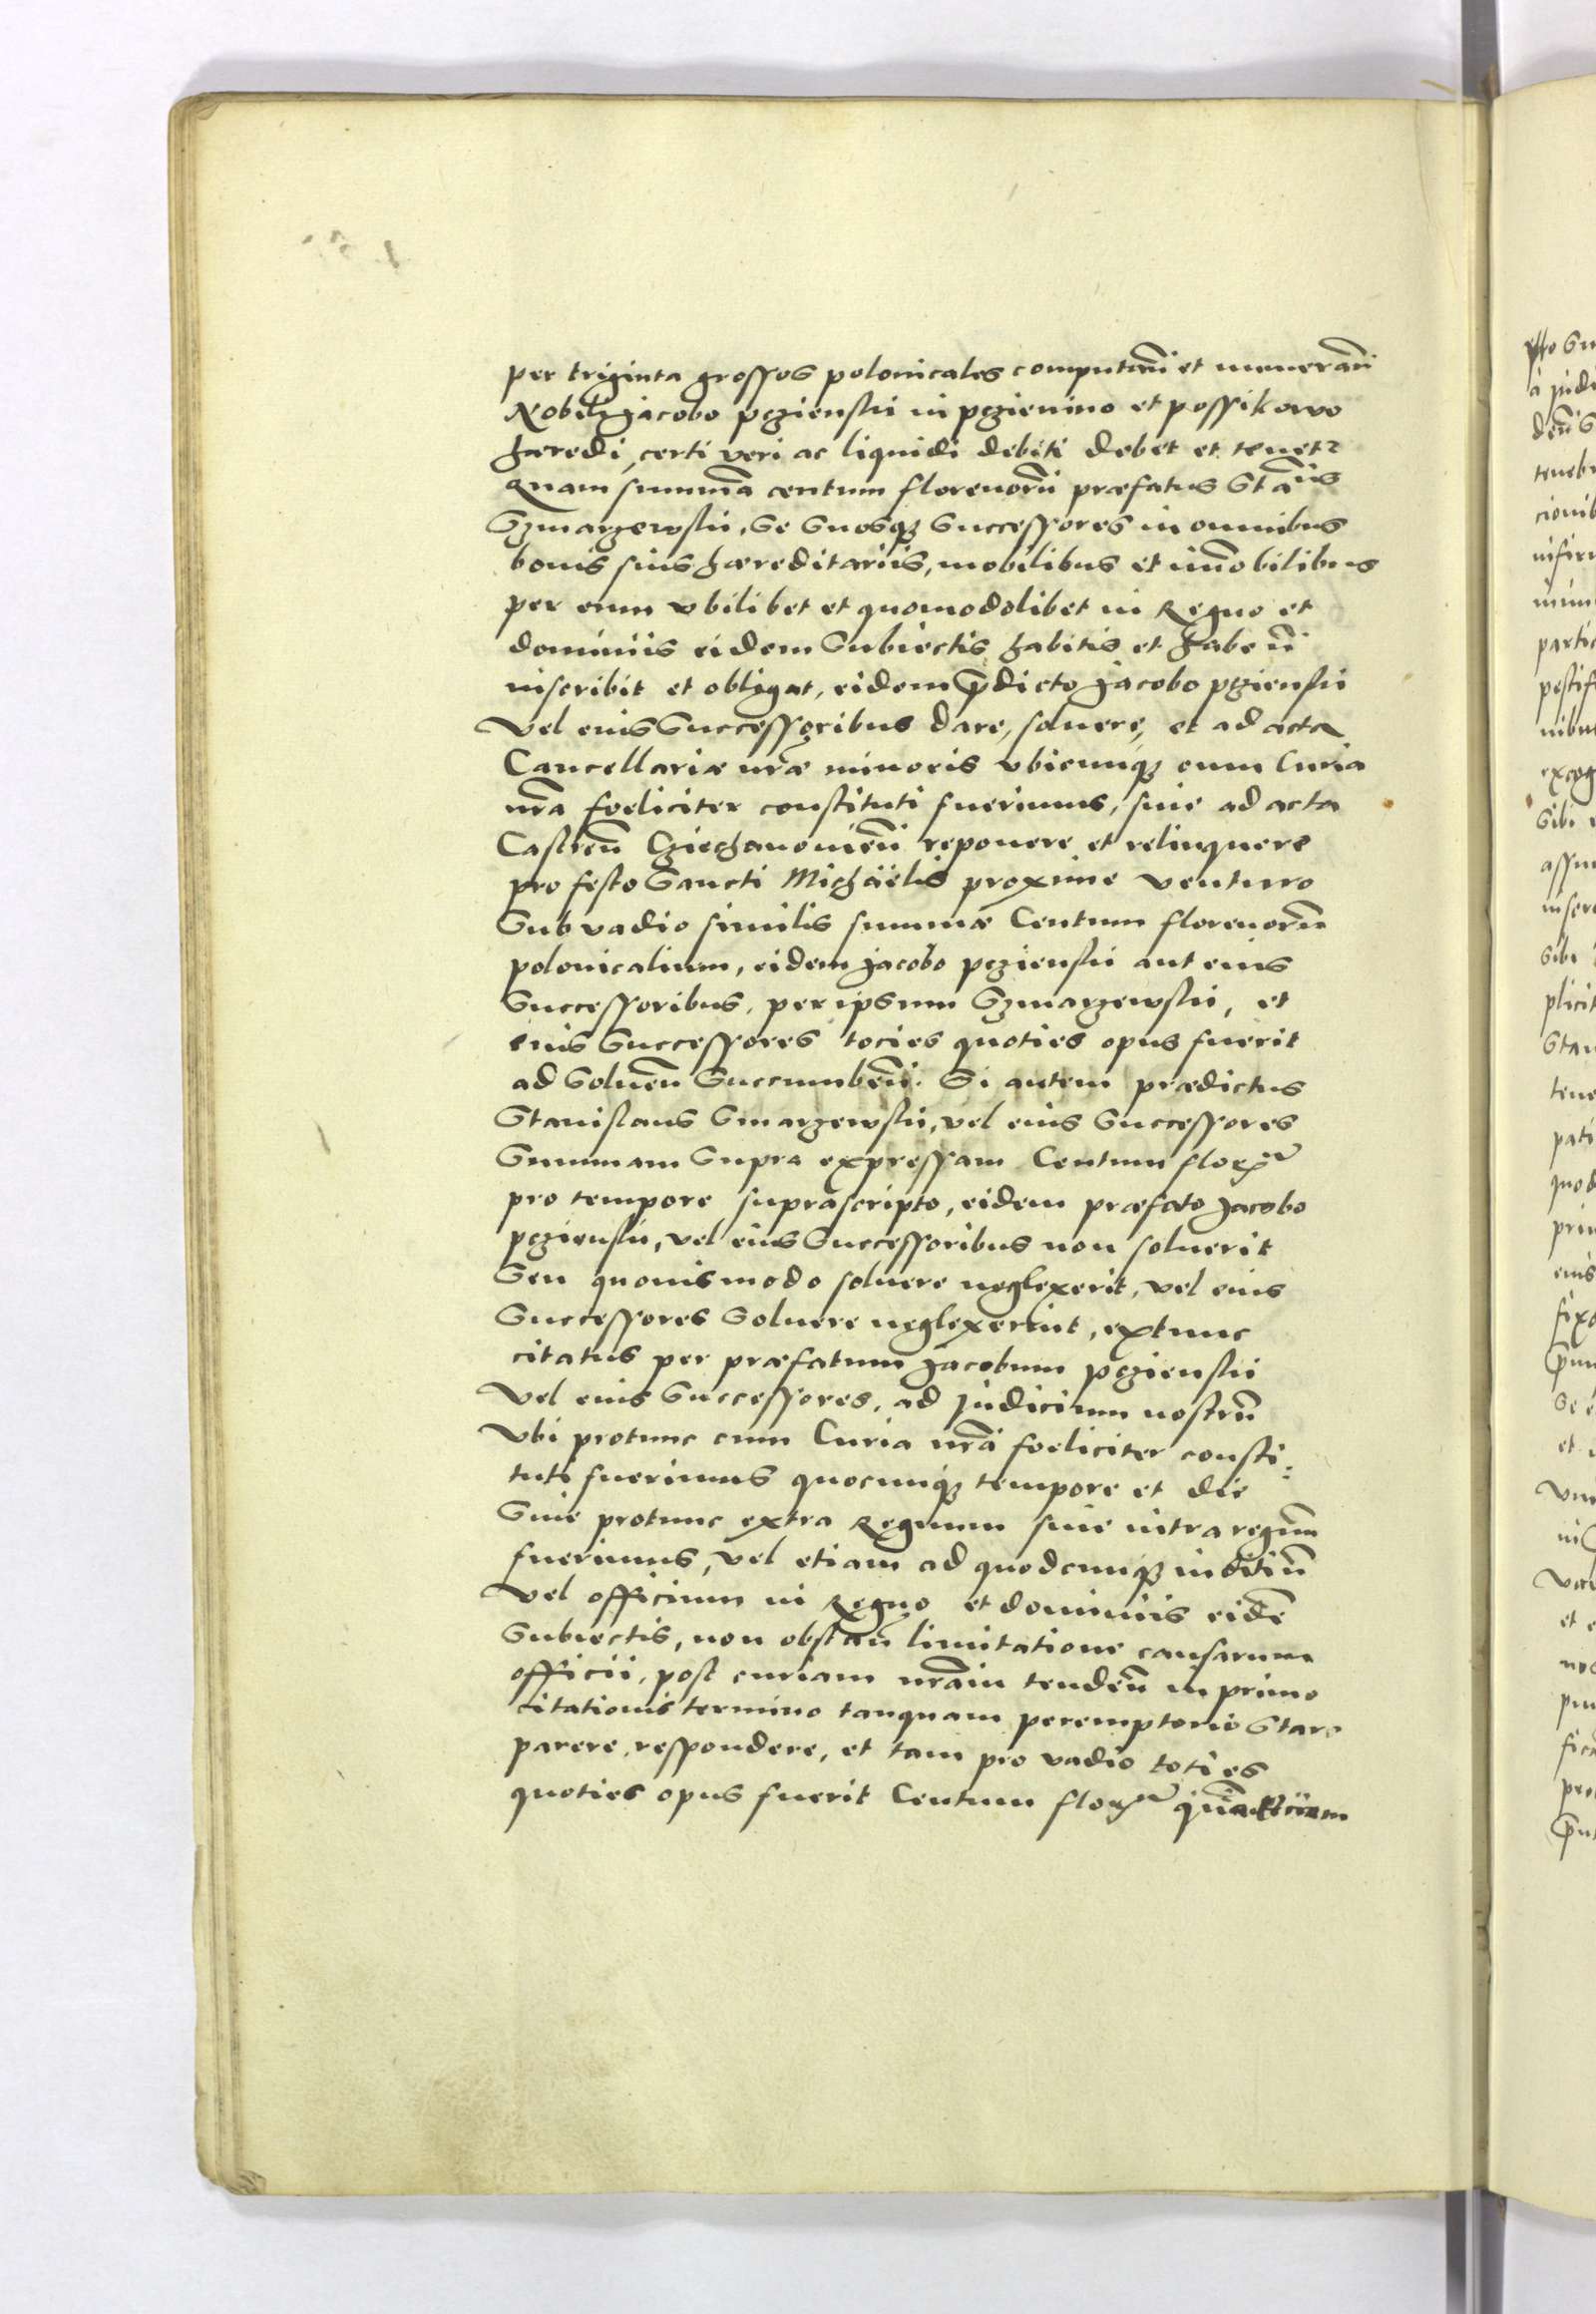 per triginta grossos polonicales computan̄ et numeran̄
Nobili Jacobo pczienskii in pczienino et possikowo
hæredi, certi veri ac liquidi debiti debet et tenetr
Quam summā centum florenorū præfatus Stanis
Szmarzewskii, Se Suosqз Successores in omnibus
bonis suis hæreditariis, mobilibus et im̄obilibus
per eum vbilibet et quomodolibet in Regno et
dominiis eidem Subiectis habitis et haben̄
inscribit et obligat, eidem p̄dicto Jacobo pczienskii
Vel eius Successoribus dare, soluere, et ad acta
Cancellariæ nr̄æ minoris vbicunqз cum Curia
nr̄a foeliciter constituti fuerimus, siue ad acta
Castren̄ Cziechanouien̄ reponere et relinquere
pro festo Sancti Michaëlis proxime venturo
Sub vadio similis summæ Centum florenorū
polonicalium, eidem Jacobo pczienskii aut eius
Successoribus, per ipsum Szmarzewskii, et
eius Successores tocies quoties opus fuerit
ad Soluen̄ Succumben̄. Si autem prædictus
Stanislaus Smarzewskii, vel eius Successores
Summam Supra expressam Centum flor
pro tempore suprascripto, eidem præfato Jacobo
pczienskii, vel eius Successoribus non soluerit
Seu quouismodo soluere neglexerit, vel eius
Successores Soluere neglexerint, extunc
citatus per præfatum Jacobum pczienskii
Vel eius Successores, ad Judicium nostrū
Vbi protunc cum Curia nr̄a foeliciter consti:
tuti fuerimus quocunqз tempore et die
Siue protunc extra Regnum siue intra regnum
fuerimus, vel etiam ad quodcunqз iuditiū
Vel officium in Regno et dominiis eidē
Subiectis, non obstan̄ limitatione causarum
officii, post curiam nr̄am tenden̄ in primo
citationis termino tanquam peremptorio Stare
parere, respondere, et tam pro vadio toties
quoties opus fuerit Centum flor quam etiam